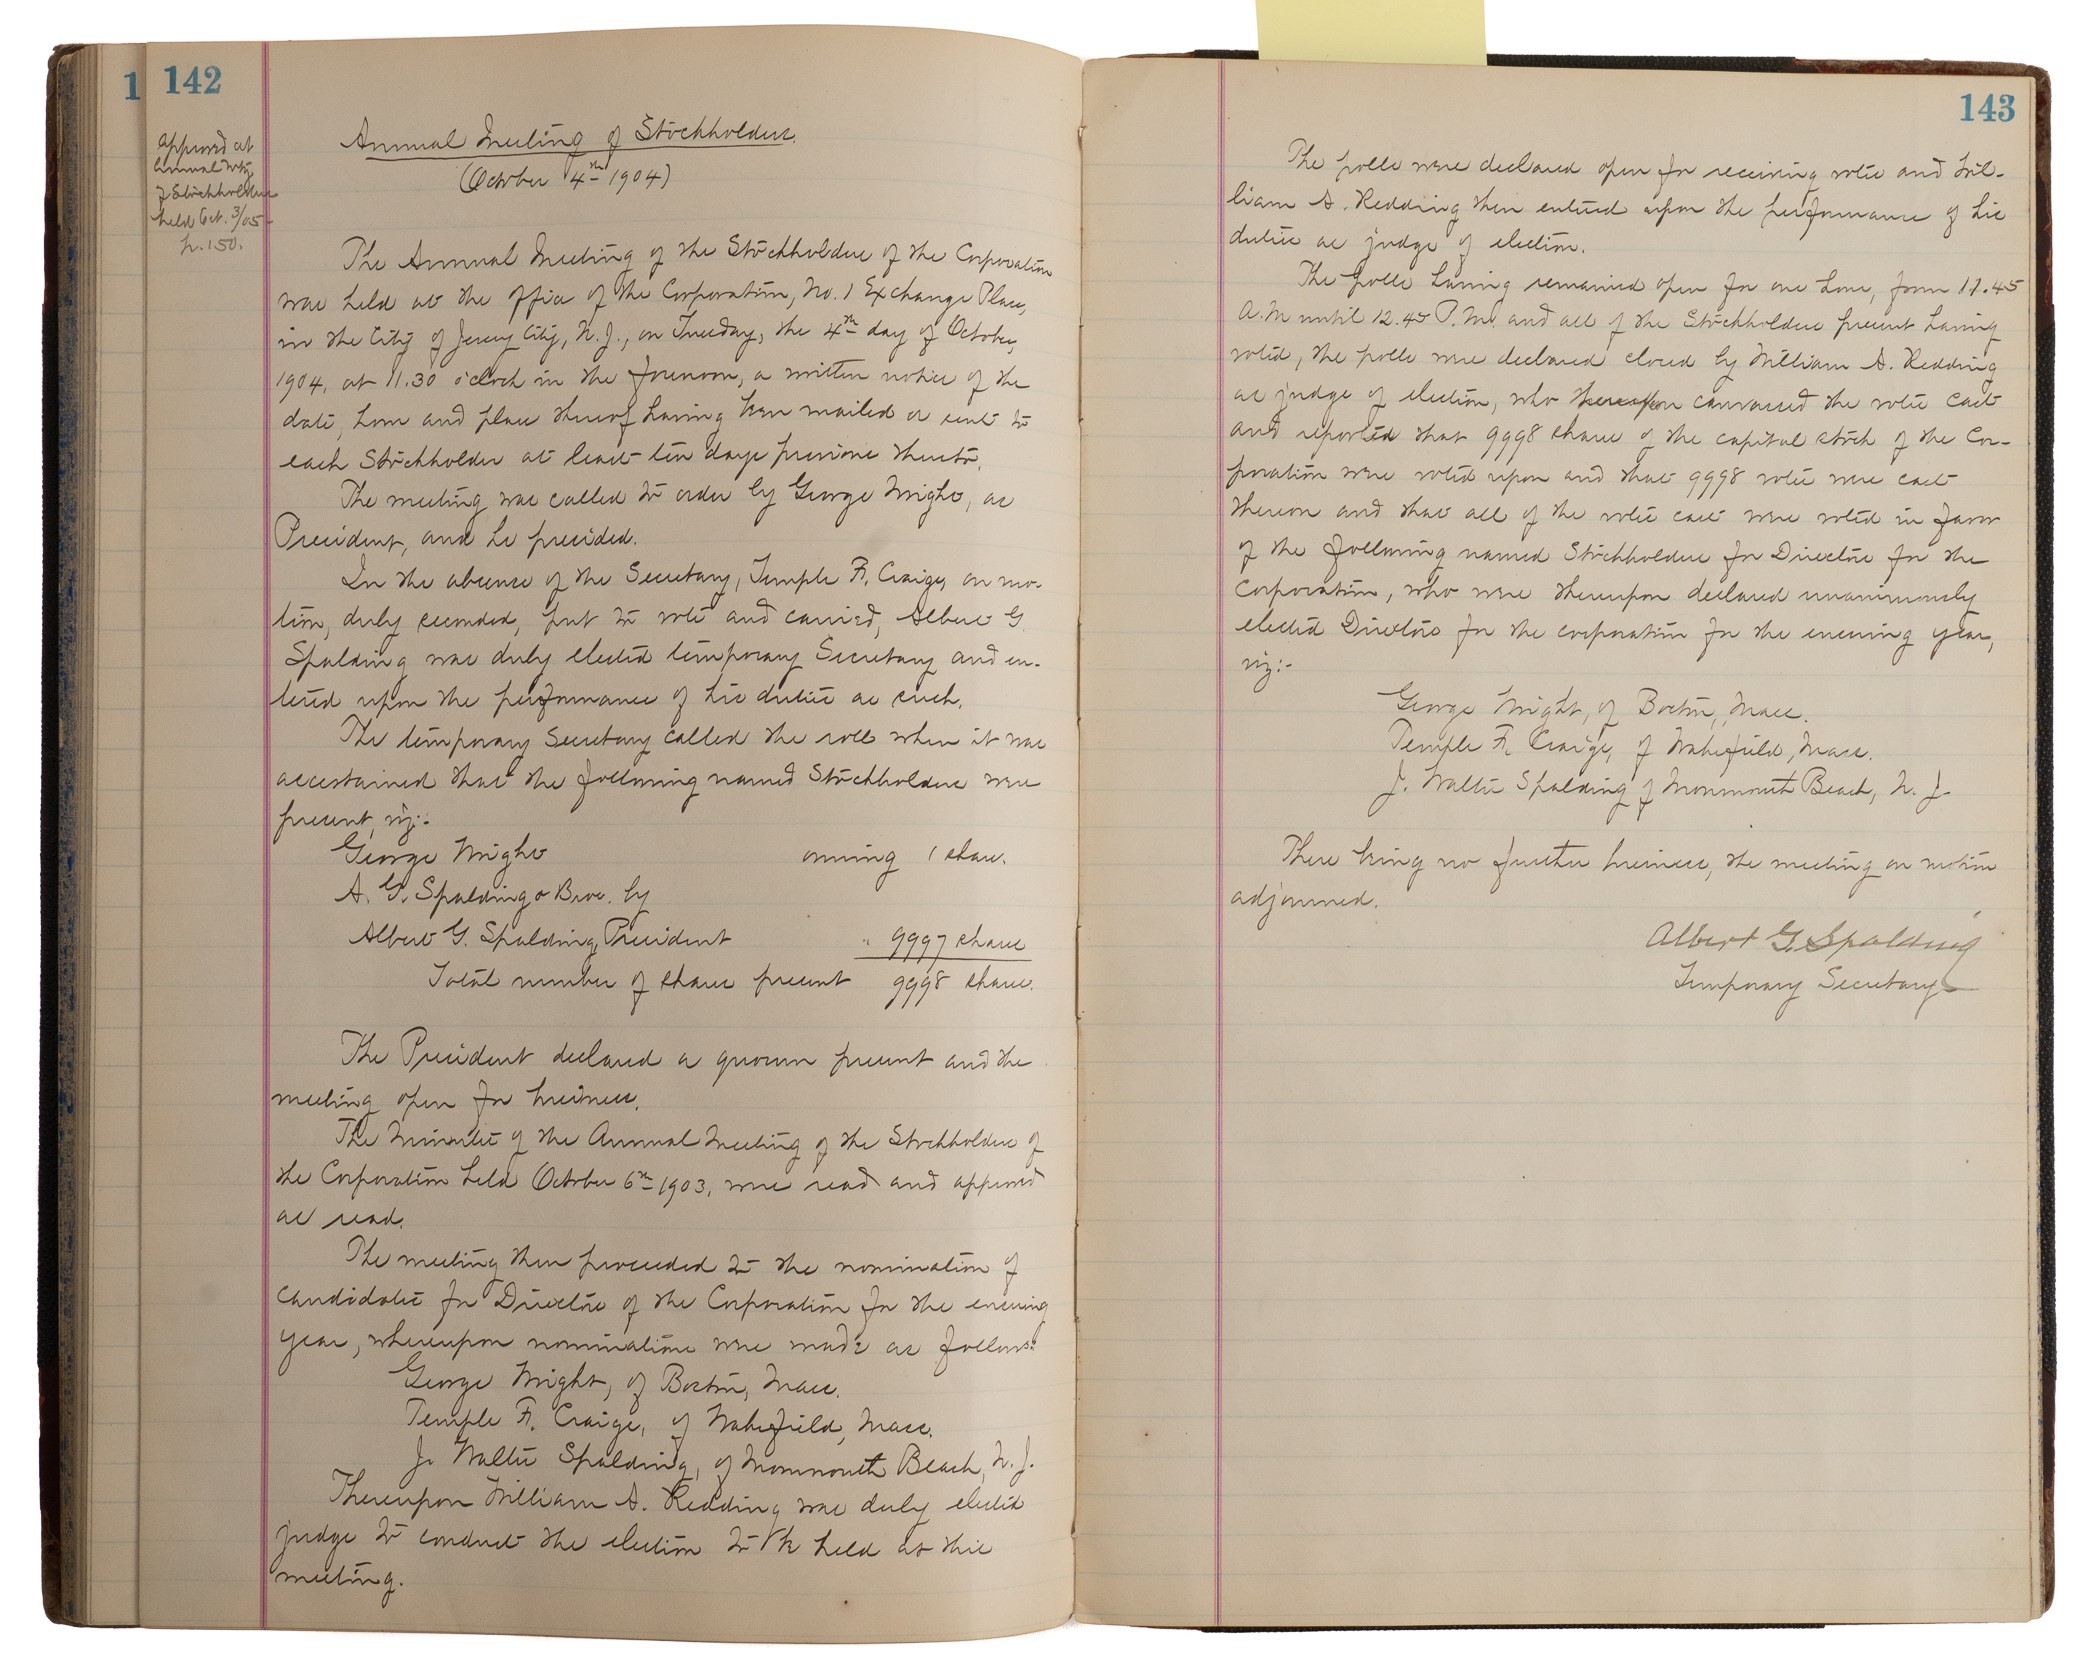 1
142
Approved at
Annual Mtg.
of Stockholders
held Oct. 3/05-
p. 150.
Annual Meeting of Stockholders.
(October 4th 1904)
The Annual Meeting of the Stockholders of the Corporation
was held at the office of the Corporation, No. 1 Exchange Place,
in the City of Jersey City, N. J., on Tuesday, the 4th day of October,
1904, at 11.30 o'clock in the forenoon, a written notice of the
date, hour and place thereof having been mailed or sent to
each Stockholder at least ten days previous thereto.
The meeting was called to order by George Wright, as
President, and he presided.
In the absence of the Secretary, Temple R. Craige, on mo-
tion, duly seconded, put to vote and carried, Albert G.
Spalding was duly elected temporary Secretary and en-
tered upon the performance of his duties as such.
The temporary Secretary called the roll when it was
ascertained that the following named Stockholders were
present, viz:-
George Wright owning 1 share.
A. G. Spalding & Bros. by
Albert G. Spalding, President " 9997 shares
Total number of shares present 9998 shares.
The President declared a quorum present and the
meeting open for business.
The Minutes of the Annual Meeting of the Stockholders of
the Corporation held October 6th 1903, were read and approved
as read.
The meeting then proceeded to the nomination of
candidates for Directors of the Corporation for the ensuing
year, whereupon nominations were made as follows:
George Wright, of Boston, Mass.
Temple R. Craige, of Wakefield, Mass.
J. Walter Spalding, of Monmouth Beach, N. J.
Thereupon William A. Redding was duly elected
judge to conduct the election to be held at this
meeting.
143
The polls were declared open for receiving votes and Wil-
liam A. Redding then entered upon the performance of his
duties as judge of election.
The polls having remained open for one hour, from 11.45
A.M until 12.45 P.M. and all of the Stockholders present having
voted, the polls were declared closed by William A. Redding
as judge of election, who thereupon canvassed the votes cast
and reported that 9998 shares of the capital stock of the Cor-
poration were voted upon and that 9998 votes were cast
thereon and that all of the votes cast were voted in favor
of the following named Stockholders for Directors for the
Corporation, who were thereupon declared unanimously
elected Directors for the corporation for the ensuing year,
viz:-
George Wright, of Boston, Mass.
Temple R. Craige, of Wakefield, Mass.
J. Walter Spalding of Monmouth Beach, N. J.
There being no further business, the meeting on motion
adjourned.
Albert G. Spalding
Temporary Secretary